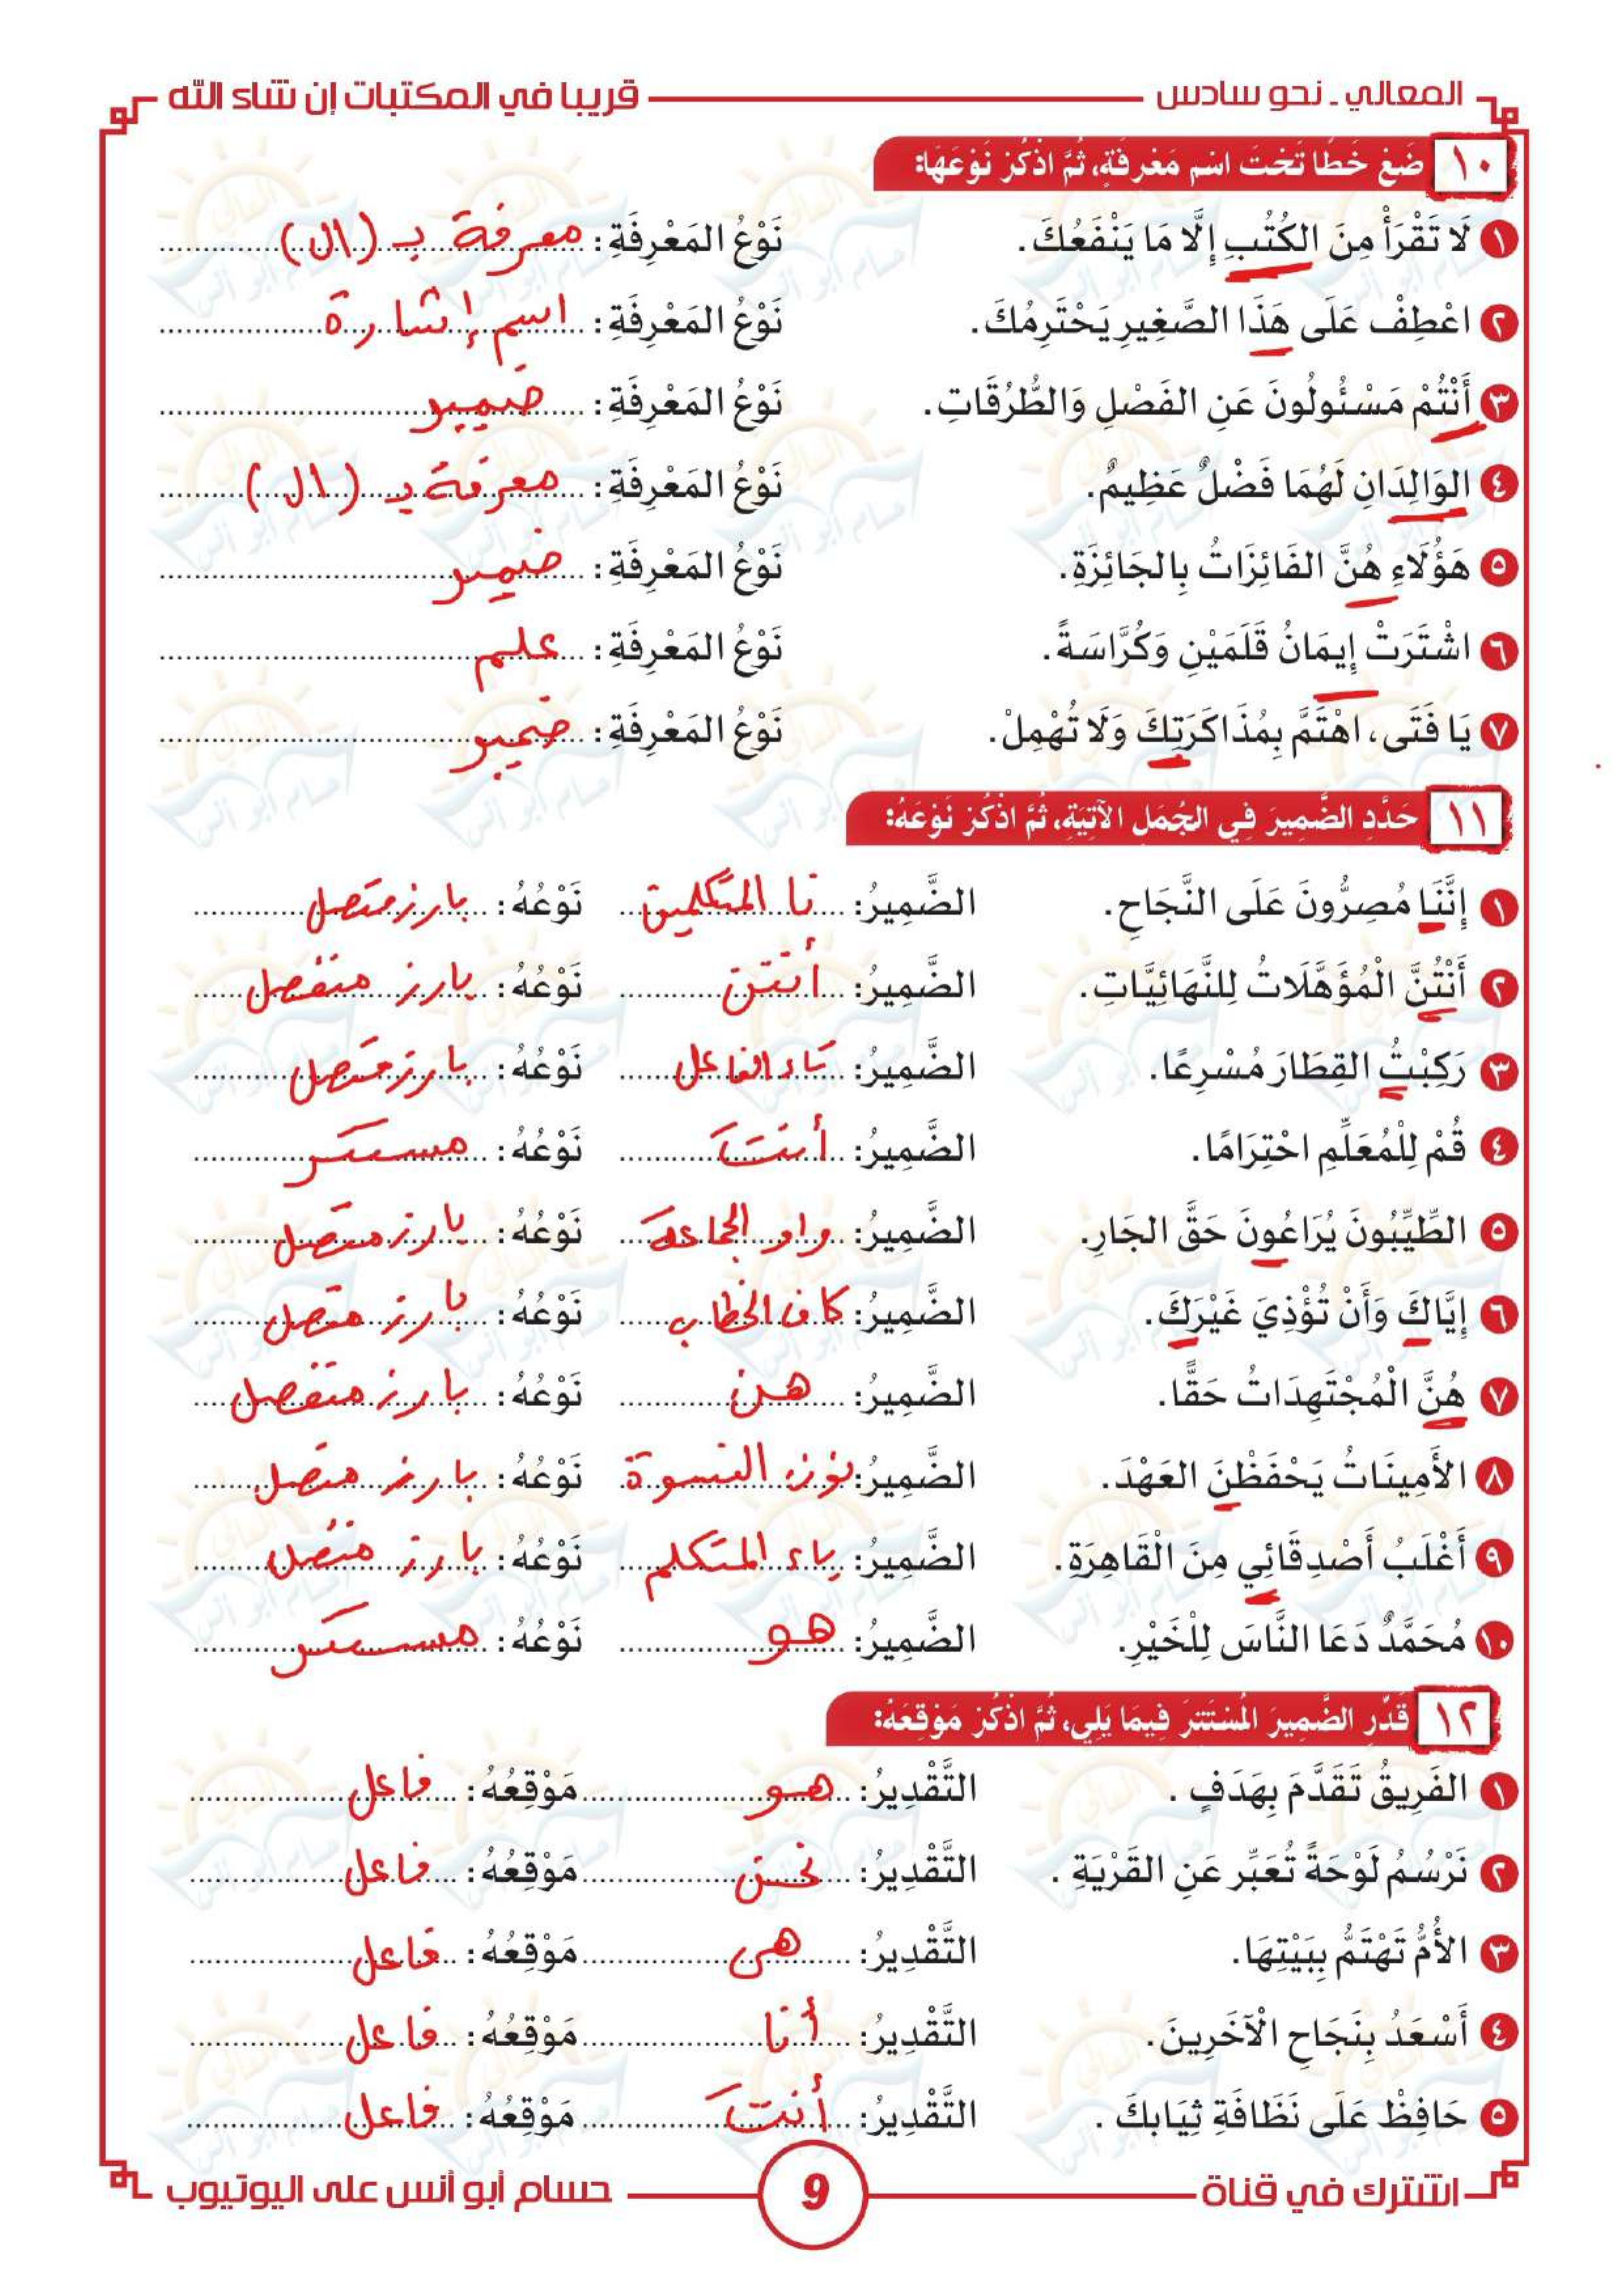 المعالي ـ نحو سادس
قريبا في المكتبات إن شاء الله
١٠ ضَعْ خَطًا تَحْتَ اسْمِ مَعْرِفَةٍ، ثُمَّ اذْكُرْ نَوْعَهَا:
١ لَا تَقْرَأْ مِنَ الكُتُبِ إِلَّا مَا يَنْفَعُكَ. نَوْعُ المَعْرِفَةِ: معرفة بـ (ال)
٢ اعْطِفْ عَلَى هَذَا الصَّغِيرِ يَحْتَرِمُكَ. نَوْعُ المَعْرِفَةِ: اسم إشارة
٣ أَنْتُمْ مَسْئُولُونَ عَنِ الفَصْلِ وَالطُّرُقَاتِ. نَوْعُ المَعْرِفَةِ: ضمير
٤ الوَالِدَانِ لَهُمَا فَضْلٌ عَظِيمٌ. نَوْعُ المَعْرِفَةِ: معرفة بـ (ال)
٥ هَؤُلَاءِ هُنَّ الفَائِزَاتُ بِالجَائِزَةِ. نَوْعُ المَعْرِفَةِ: ضمير
٦ اشْتَرَتْ إِيمَانُ قَلَمَيْنِ وَكُرَّاسَةً. نَوْعُ المَعْرِفَةِ: علم
٧ يَا فَتَى، اهْتَمَّ بِمُذَاكَرَتِكَ وَلَا تُهْمِلْ. نَوْعُ المَعْرِفَةِ: ضمير
١١ حَدَّدِ الضَّمِيرَ فِي الجُمَلِ الآتِيَةِ، ثُمَّ اذْكُرْ نَوْعَهُ:
١ إِنَّنَا مُصِرُّونَ عَلَى النَّجَاحِ. الضَّمِيرُ: نا المتكلمين نَوْعُهُ: بارز متصل
٢ أَنْتُنَّ الْمُؤَهَّلَاتُ لِلنَّهَائِيَّاتِ. الضَّمِيرُ: أنتن نَوْعُهُ: بارز منفصل
٣ رَكِبْتُ القِطَارَ مُسْرِعًا. الضَّمِيرُ: تاء الفاعل نَوْعُهُ: بارز متصل
٤ قُمْ لِلْمُعَلِّمِ احْتِرَامًا. الضَّمِيرُ: أنتَ نَوْعُهُ: مستتر
٥ الطَّيِّبُونَ يُرَاعُونَ حَقَّ الجَارِ. الضَّمِيرُ: واو الجماعة نَوْعُهُ: بارز متصل
٦ إِيَّاكَ وَأَنْ تُؤْذِيَ غَيْرَكَ. الضَّمِيرُ: كاف الخطاب نَوْعُهُ: بارز متصل
٧ هُنَّ الْمُجْتَهِدَاتُ حَقًّا. الضَّمِيرُ: هن نَوْعُهُ: بارز منفصل
٨ الأَمِينَاتُ يَحْفَظْنَ العَهْدَ. الضَّمِيرُ: نون النسوة نَوْعُهُ: بارز متصل
٩ أَغْلَبُ أَصْدِقَائِي مِنَ الْقَاهِرَةِ. الضَّمِيرُ: ياء المتكلم نَوْعُهُ: بارز متصل
١٠ مُحَمَّدٌ دَعَا النَّاسَ لِلْخَيْرِ. الضَّمِيرُ: هو نَوْعُهُ: مستتر
١٢ قَدِّرِ الضَّمِيرَ الْمُسْتَتِرَ فِيمَا يَلِي، ثُمَّ اذْكُرْ مَوْقِعَهُ:
١ الفَرِيقُ تَقَدَّمَ بِهَدَفٍ . التَّقْدِيرُ: هو مَوْقِعُهُ: فاعل
٢ نَرْسُمُ لَوْحَةً تُعَبِّر عَنِ القَرْيَةِ . التَّقْدِيرُ: نحن مَوْقِعُهُ: فاعل
٣ الأُمُّ تَهْتَمُّ بِبَيْتِهَا. التَّقْدِيرُ: هى مَوْقِعُهُ: فاعل
٤ أَسْعَدُ بِنَجَاحِ الْآخَرِينَ. التَّقْدِيرُ: أنا مَوْقِعُهُ: فاعل
٥ حَافِظْ عَلَى نَظَافَةِ ثِيَابِكَ . التَّقْدِيرُ: أنتَ مَوْقِعُهُ: فاعل
اشترك في قناة
9
حسام أبو أنس على اليوتيوب